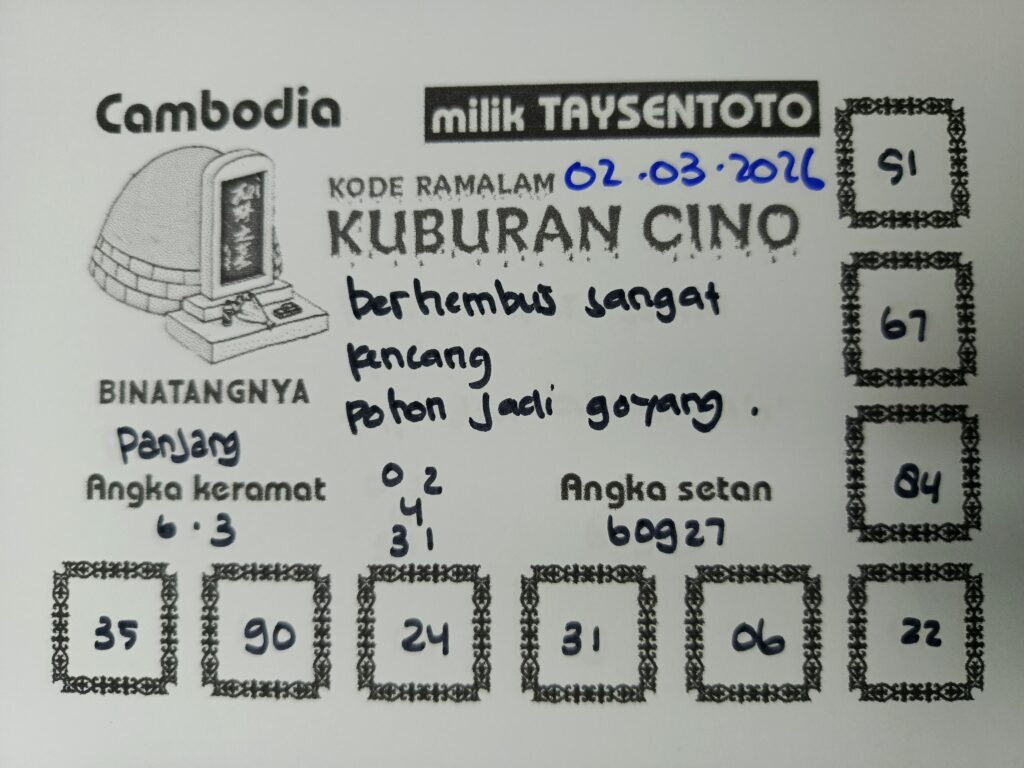 Cambodia
milik TAYSENTOTO
KODE RAMALAM 02.03.2026
KUBURAN CINO
berhembus sangat
kencang
pohon jadi goyang.
BINATANGNYA
Panjang
Angka keramat
6.3
0 2
4
31
Angka setan
60927
51
67
84
35
90
24
31
06
22